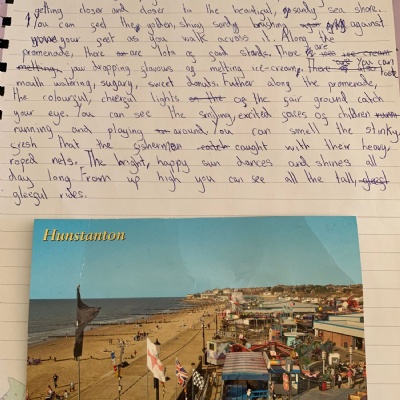 getting closer and closer to the beautiful, sandy sea shore.
You can feel the golden, shiny sandy brushing against
your feet as you walk across it. Along the
promenade, there are lots of food stands. There are
you dropping flavours of melting ice-creamy, There You can
mouth watering, sugary, sweet donuts. Futher along the promenade,
the colourful, cheerful lights of the fair ground catch
your eye. You can see the smiling, excited faces of children
running and playing around. You can smell the stinky
fish that the fishermen caught with their heavy
roped nets. The bright, happy sun dances and shines all
day long. From up high you can see all the tall,
gleeful rides.
Hunstanton